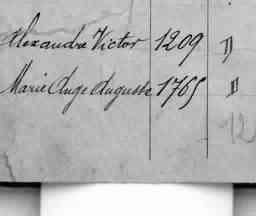 Alexandre Victor 1209 "
Marie Ange Auguste 1765 "
12